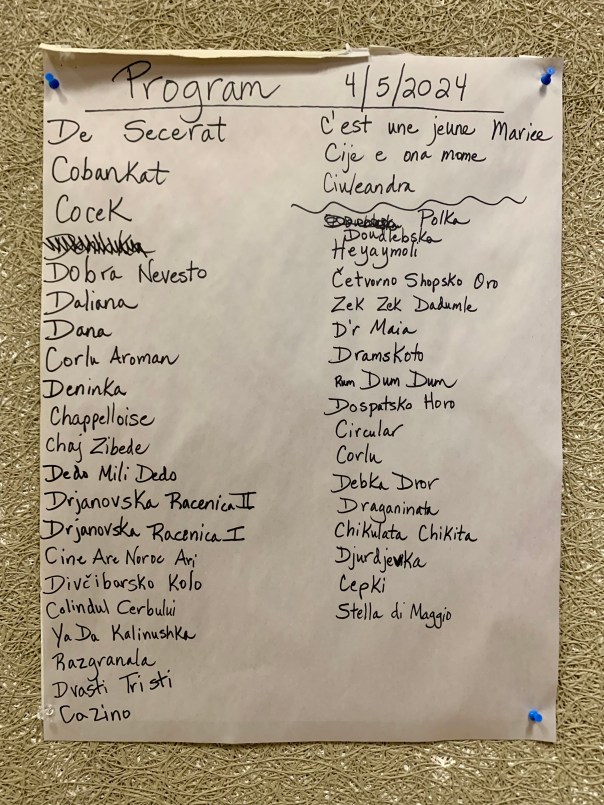 Program 4/5/2024
De Secerat
Cobankat
Cocek
Dobra Nevesto
Daliana
Dana
Corlu Aroman
Deninka
Chappelloise
Chaj Zibede
Dedo Mili Dedo
Drjanovska Racenica II
Drjanovska Racenica I
Cine Are Noroc Ari
Divčibarsko Kolo
Colindul Cerbului
Ya Da Kalinushka
Razgranala
Dvašti Tri sti
Cazino
C'est une jeune Mariee
Cije e ona mome
Ciuleandra
Polka
Doudlebska
Heyaymoli
Četvorno Shopsko Oro
Zek Zek Dadumle
D'r Maia
Dramskoto
Rum Dum Dum
Dospatsko Horo
Circular
Corlu
Debka Dror
Draganinata
Chikulata Chikita
Djurdjevka
Cepki
Stella di Maggio